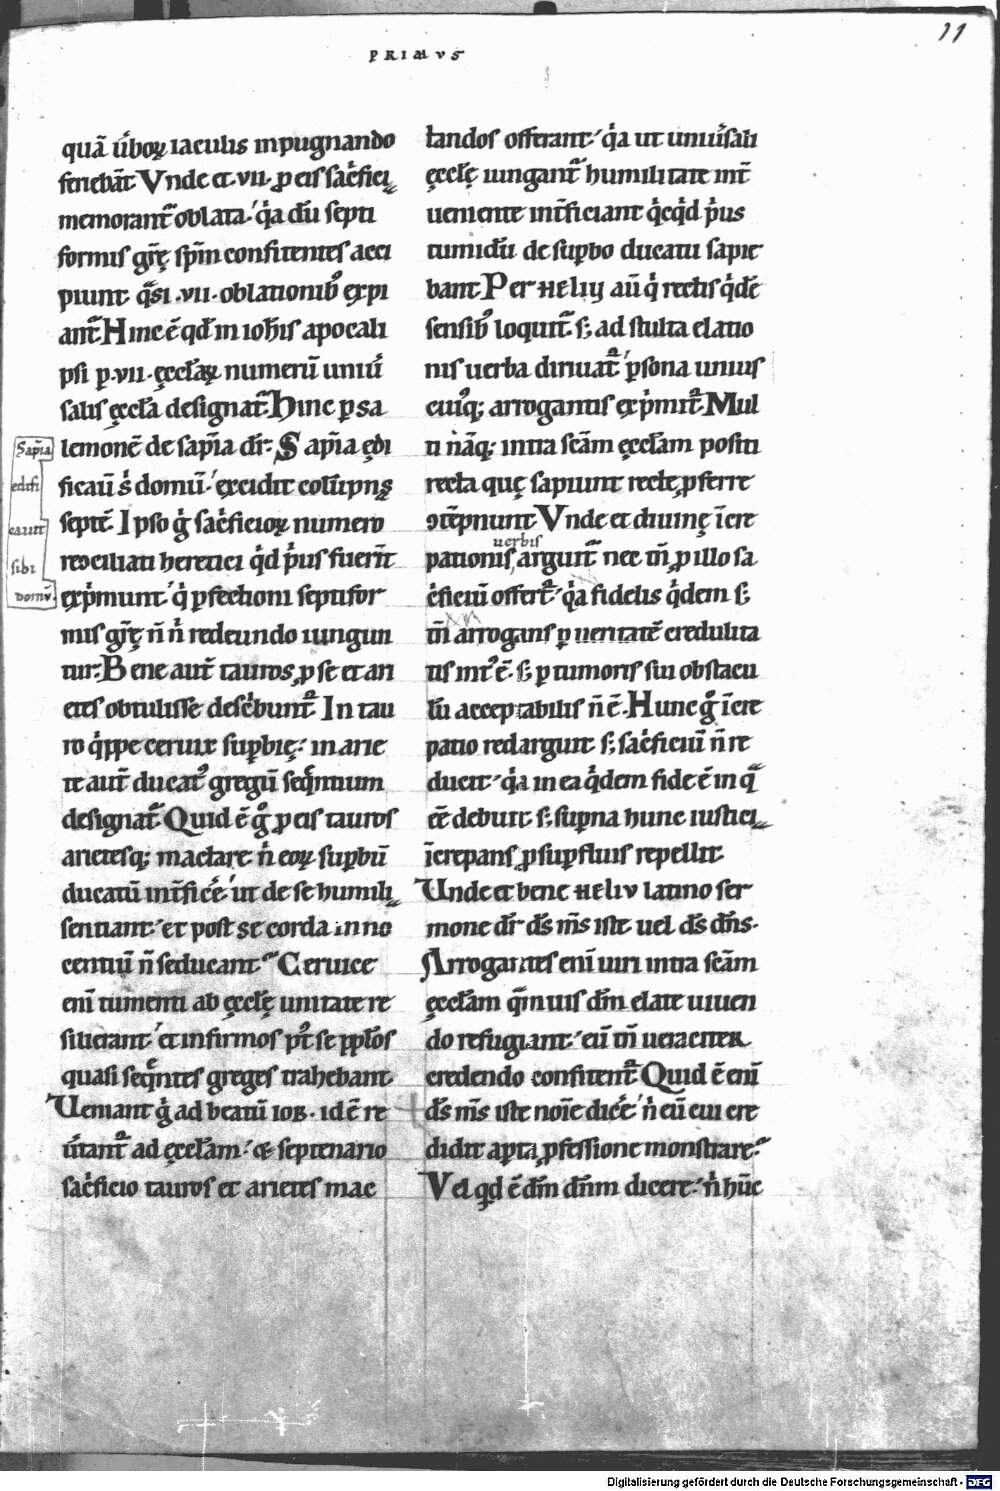 PRIMVS
11
quā ủboꝝ iaculis inpugnando
feriebāt Vnde et·vii·ꝓ eis sac̉fici
memorant᷑ oblata·ꝗ̉a dū septi
formis gr̄ę sp̄m confitentes acci
piunt q̄si·vii·oblationib᷒ ęxpi
ant᷑ Hinc ē qđ in ioh̄is apocali
psi ꝑ·vii·ęccl̄aꝝ numerū uniủ
salis ęccl̄a designat᷑ Hinc ꝑ sa
lemonē de sapīa dr̄: Sapīa ędi
ficauīt s̉ domū/ ęxcidit colūpnę
septē Ipso g̉ sac̉ficioꝝ numero
recōciliati heretici qd̉ p̉us fuerīt
ęxp̉munt/ ꝗ̉ ꝑfectioni septifor
mis gr̄ę n̄ n̉ redeundo iungun
tur: Bene aut̄ tauros ꝓ se et ari
etes obtulisse desc̉bunt᷑ In tau
ro ꝗ̉ppe ceruix supbię: in arie
te aut̄ ducat᷒ gregū seq̄ntium
designat᷑ Quid ē g̊ ꝓ eis tauros
arietesq; mactare n̉ eoꝝ supbū
ducatū int̄fice̊/ ut de se humili
sentiant/ et post se corda inno
centiū n̄ seducant᷑ Ceruice
enī tumenti ab ęccl̄ę unitate re
siluerant/ et infirmos pt̊ se ppl̄os
quasi seq̄ntes greges trahebant
Veniant g̉ ad beatū IOB·id ē re
ủtant᷑ ad ęccl̄am·& septenario
sac̉ficio tauros et arietes mac
Sapīa
edifi
cauit
sibi
domū
tandos offerant/ ꝗ̉a ut uniủsali
ęccl̄ę iungant᷑ humilitate int̄
ueniente int̄ficiant q̉cq̉d p̉us
tumidū de supbo ducatu sapie
bant Per HELIV aū ꝗ̉ rectis ꝗ̉dē
sensib᷒ loquit᷑ s; ad stulta elatio
nis uerba diriuat᷑/ ꝑsona unius
cui᷒q; arrogantis ęxp̉mit᷑ Mul
ti nāq; intra sc̄am ęccl̄am positi
recta quę sapiunt recte ꝓferre
ↄtēpnunt Vnde et diuinę īcre
uerbis
pationis arguit᷑ nec tn̄ ꝓ illo sa
c̉ficiū offert᷑·ꝗ̉a fidelis ꝗ̉dem s;
tn̄ arrogans ꝑ ueritatē credulita
tis int᷒ ē·s; ꝑ tumoris sui obstacu
lū acceptabilis n̄ ē·Hunc g̊ īcre
patio redarguit s; sac̉ficiū n̄ re
ducit·ꝗ̉a in ea ꝗ̉dem fide ē in q̄
eē debuit s; supna hunc iustici
īcrepans ꝓ supfluis repellit
Vnde et bene HELIV latino ser
mone dr̄ ds̄ ms̄ iste uel ds̄ dn̄s·
Arrogantes enī uiri intra sc̄am
ęccl̄am q̄muis dm̄ elate uiuen
do refugiant·eū tn̄ ueraciter
credendo confitent᷑ Quid ē enī
ds̄ ms̄ iste noīe dice̊/ n̉ eū cui cre
didit apta ꝓfessione monstrare:
Vel qd̄ ē dm̄ dn̄m dicere·n̉ hūc
Digitalisierung gefördert durch die Deutsche Forschungsgemeinschaft - DFG